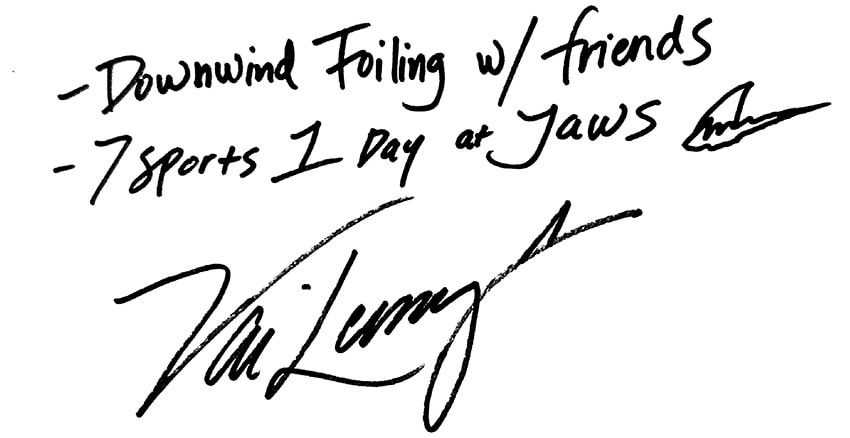 - Downwind Foiling w/ friends
- 7 sports 1 Day at Jaws
Kai Lenny